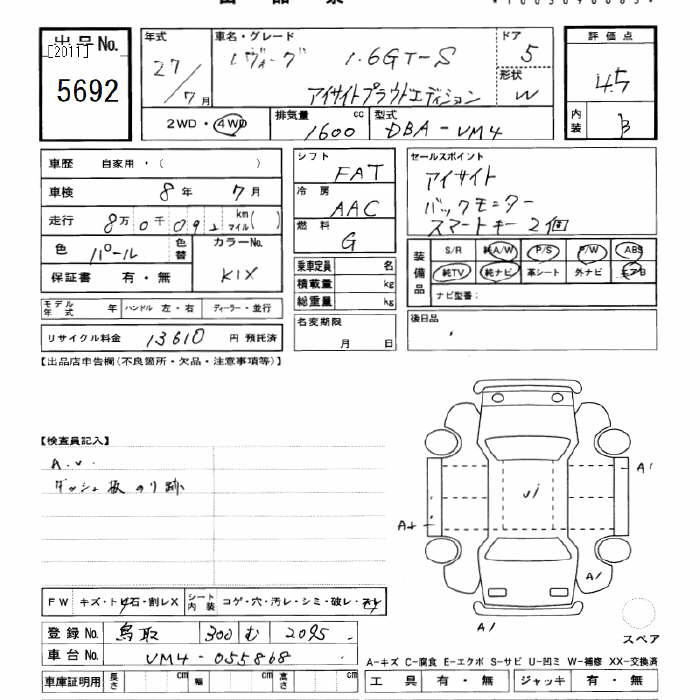 出品票
*1003090085*
出品No.
[2011]
5692
年式
27/7月
車名・グレード
レヴォーグ 1.6GT-S
アイサイトプラウドエディション
ドア
5
形状
W
評価点
4.5
内装
B
2WD・4WD
排気量
1600cc
型式
DBA-VM4
車歴 自家用・( )
車検 8年 7月
走行 8万0千09 km マイル( )
色 パール
色替
カラーNo.
K1X
保証書 有・無
モデル年式 年 ハンドル 左・右 ディーラー・並行
リサイクル料金 13610 円 預託済
シフト
FAT
冷房
AAC
燃料
G
乗車定員 名
積載量 kg
総重量 kg
名変期限
月 日
セールスポイント
アイサイト
バックモニター
スマートキー2個
装備品
S/R 純A/W P/S P/W ABS
純TV 純ナビ 革シート 外ナビ エアB
ナビ型番：
後日品
【出品店申告欄(不良箇所・欠品・注意事項等)】
【検査員記入】
A.U.
ダッシュ板 のり跡
A1
U1
A+
A1
A1
スペア
FW キズ・トビ石・割レX
シート内装 コゲ・穴・汚レ・シミ・破レ・スレ
登録No. 鳥取 300 む 2095
車台No. VM4-055868
車庫証明用 長さ cm 幅 cm 高さ cm
A-キズ C-腐食 E-エクボ S-サビ U-凹ミ W-補修 XX-交換済
工具 有・無 ジャッキ 有・無